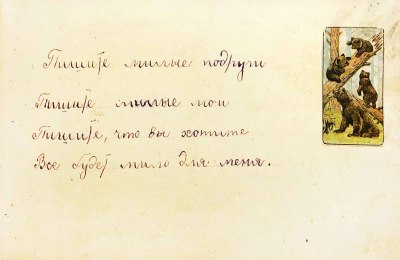 Пишите милые подруги
Пишите милые мои
Пишите, что вы хотите
Все будет мило для меня.